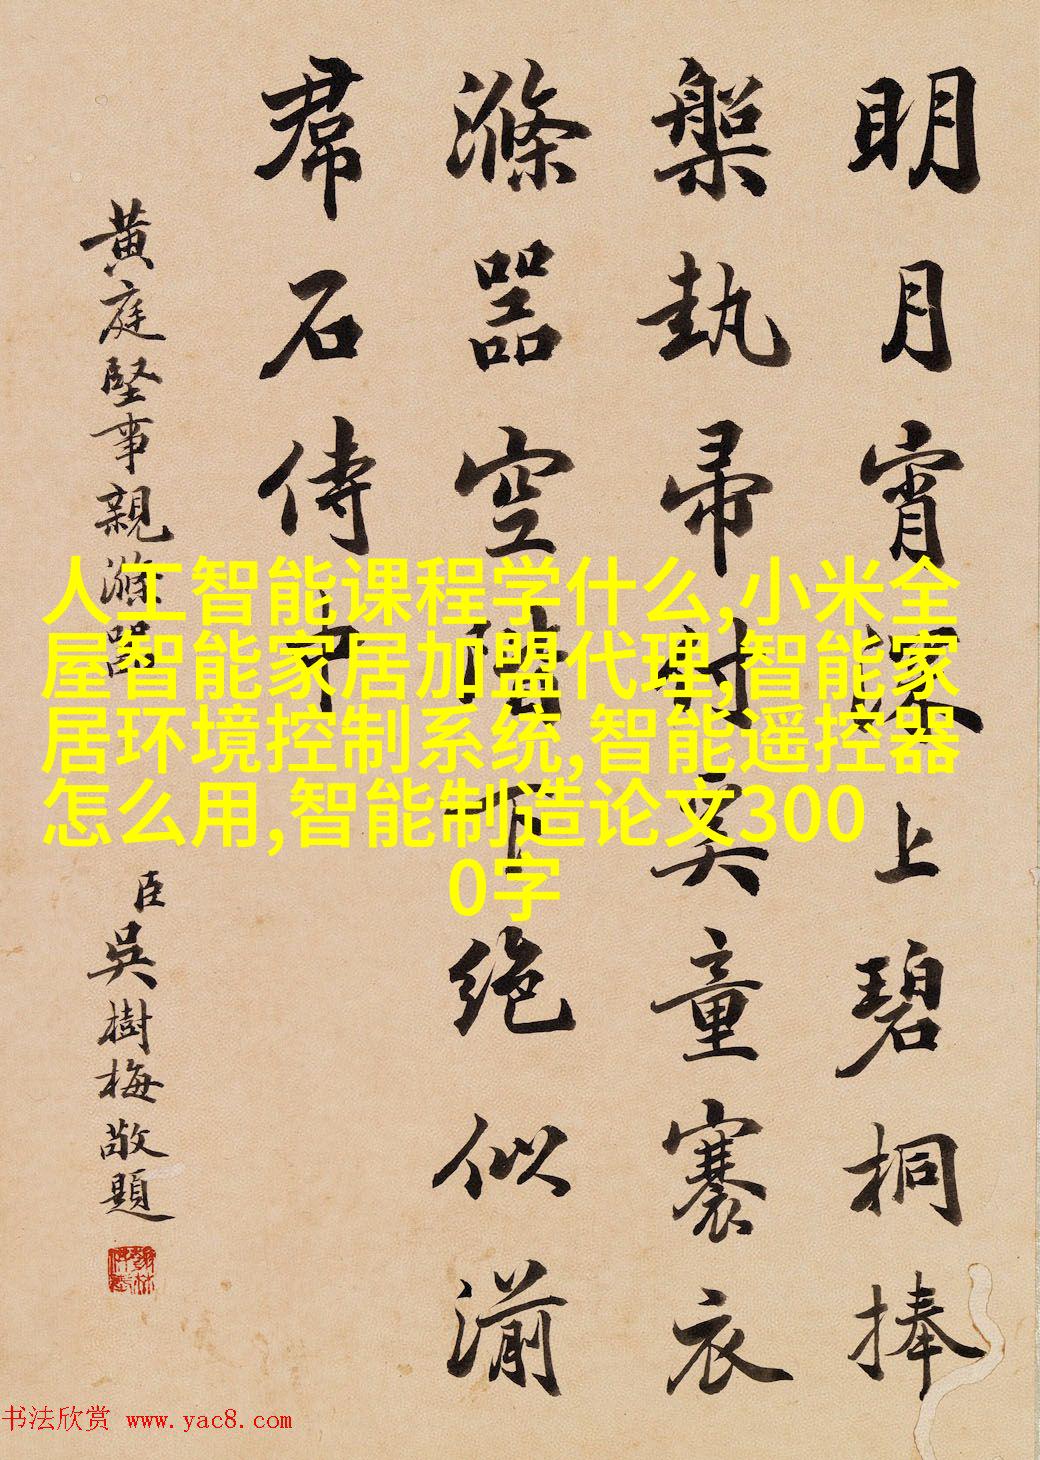 明月宵深上碧桐捧
槃執帚對奚童褰衣
滌器空階下絶似湔
帬石侍中
黃庭堅事親滌器
臣吳樹梅敬題
人工智能课程学什么,小米全
屋智能家居加盟代理,智能家
居环境控制系统,智能遥控器
怎么用,智能制造论文300
0字
书法欣赏 www.yac8.com